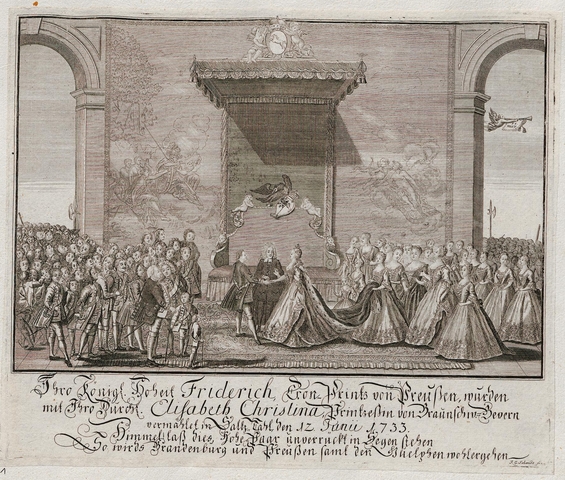 Ihro Königl. Hoheit Friderich, Cron-Prints von Preußen, wurden
mit Ihro Durchl. Elisabeth Christina, Printzeßin von Braunschw. Bevern
vermählet in Saltz Dahl den 12 Junii 1733.
Himmel laß dies Hohe Paar unverruckt in Segen stehen
So wirds Brandenburg und Preußen samt den Guelphen wohlergehen